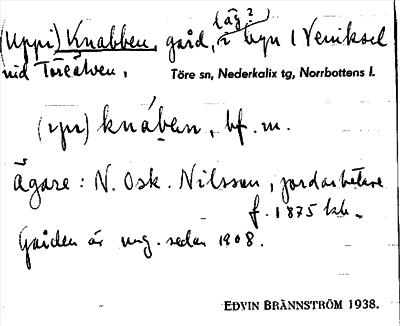 (Uppi) Knabben, gård, i byn (Veniksel
(äg?)
vid Töreälven,
Töre sn, Nederkalix tg, Norrbottens l.
(ɩpɩ) knáben, bf. m.
ägare: N. Osk. Nilsson, jordarbetare
f. 1875 kh.
Gården är ung. sedan 1908.
EDVIN BRÄNNSTRÖM 1938.